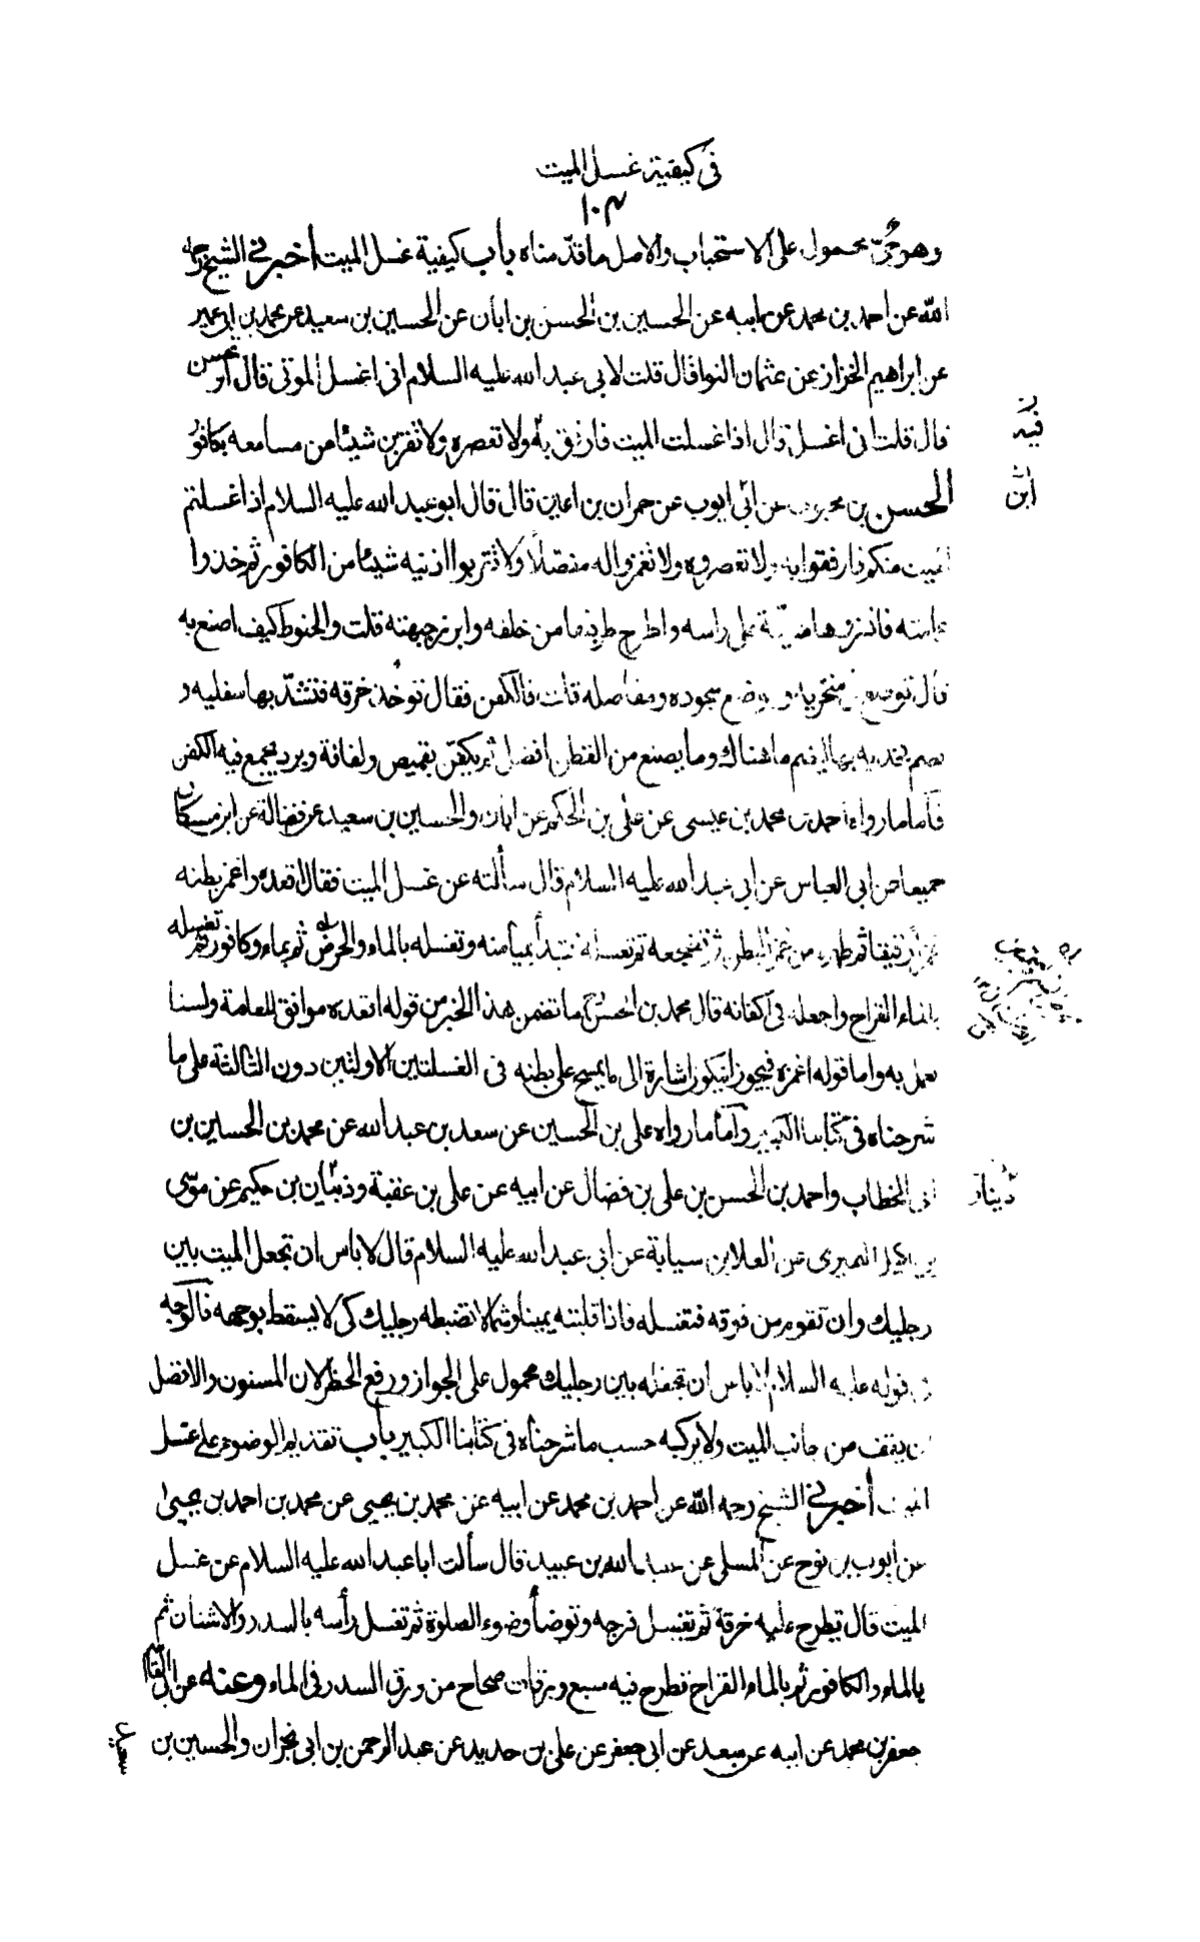 في كيفية غسل الميت
١٠٣
وهو محمول على الاستحباب والاصل ما قدمناه باب كيفية غسل الميت أخبرني الشيخ رحمه
الله عن احمد بن محمد عن ابيه عن الحسين بن الحسن بن ابان عن الحسين بن سعيد عن محمد بن ابي عمير
عن ابراهيم الخزاز عن عثمان النوا قال قلت لابي عبد الله عليه السلام اني اغسل الموتى قال او تحسن
قال قلت اني اغسل قال اذا غسلت الميت فارفق به ولا تعصره ولا تقربن شيئا من مسامعه بكافور
الحسن بن محبوب عن ابي ايوب عن حمران بن اعين قال قال ابو عبد الله عليه السلام اذا غسلتم
الميت منكم فارفقوا به ولا تعصروه ولا تغمزوا له مفصلا ولا تقربوا اذنيه شيئا من الكافور ثم خذوا
عمامته فانشروها مثنية على راسه واطرح طرفيها من خلفه وابرز جبهته قلت والحنوط كيف اصنع به
قال يوضع في منخريه و موضع سجوده ومفاصله قلت فالكفن فقال تؤخذ خرقه فتشد بها سفليه و
يضم فخذيه بها ليضم ما هناك وما يصنع من القطن افضل ثم يكفن بقميص ولفافة وبرد يجمع فيه الكفن
فأما ما رواه احمد بن محمد بن عيسى عن علي بن الحكم عن ابان والحسين بن سعيد عن فضالة عن ابن مسكان
جميعا عن ابي العباس عن ابي عبد الله عليه السلام قال سألته عن غسل الميت فقال اقعده واغمز بطنه
غمزا رفيقا ثم طهره من غمز البطن ثم تضجعه ثم تغسله تبدأ بميامنه وتغسله بالماء والحرض ثم بماء وكافور ثم تغسله
بالماء القراح واجعله في أكفانه قال محمد بن الحسن ما تضمن هذا الخبر من قوله اقعده موافق للعامة ولسنا
نعمل به واما قوله اغمزه فيجوز ان يكون اشارة الى ما يمسح على بطنه في الغسلتين الاولتين دون الثالثة على ما
شرحناه في كتابنا الكبير وأما ما رواه علي بن الحسين عن سعد بن عبد الله عن محمد بن الحسين بن
ابي الخطاب واحمد بن الحسن بن علي بن فضال عن ابيه عن علي بن عقبة وذبيان بن حكيم عن موسى
بن اكيل النميري عن العلا بن سيابة عن ابي عبد الله عليه السلام قال لا باس ان تجعل الميت بين
رجليك وان تقوم من فوقه فتغسله فاذا قلبته يمينا وشمالا تضبطه رجليك كي لا يسقط بوجهه فالوجه
في قوله عليه السلام لا باس ان تجعله بين رجليك محمول على الجواز ورفع الحظر لان المسنون والافضل
ان يقف من جانب الميت ولا يركبه حسب ما شرحناه في كتابنا الكبير باب تقديم الوضوء على غسل
الميت أخبرني الشيخ رحمه الله عن احمد بن محمد عن ابيه عن محمد بن يحيى عن محمد بن احمد بن يحيى
عن ايوب بن نوح عن المسلي عن عبد الله بن عبيد قال سألت ابا عبد الله عليه السلام عن غسل
الميت قال تطرح عليه خرقة ثم تغسل فرجه وتوضأ وضوء الصلوة ثم تغسل رأسه بالسدر والاشنان ثم
بالماء والكافور ثم بالماء القراح تطرح فيه سبع ورقات صحاح من ورق السدر في الماء وعنه عن ابي القاسم
جعفر بن محمد عن ابيه عن سعد عن ابي جعفر عن علي بن حديد عن عبد الرحمن بن ابي نجران والحسين بن
سعيد
فيه
ابن
دينار